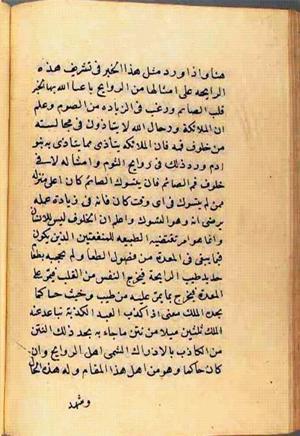 هنا واذا ورد مثل هذا الخبر في تشريف هذه
الرايحه على امثالها من الروايح باعتنا الله بها انجبر
قلب الصائم ورغب في الزياده من الصوم وعلم
ان الملائكة ورجال الله لا يتاذون في مجالسته
من خلوف فمه فان الملائكة يتاذى مما يتاذى به بنو
ادم ورد ذلك في روايح الثوم وامثاله لا في
خلوف فم الصائم فان تسوك الصائم كان اعلى منزلة
ممن لم يتسوك في اى وقت كان فانه في زيادة عمله
يرضى الله وهو التسوك واعلم ان الخلوف ليس للانسان
وانما هو امر تقتضيه الطبيعه للتعفين الذي يكون
فيما يبقى في المعدة من فضول الطعام ولم يحجبه بطعام
جديد طيب الرايحة فيخرج النفس من القلب فيمر على
المعدة فيخرج بما يمر عليه من طيب وخبث حسا كما
يجد الملك معنى اذا كذب العبد الكذبة تباعد عنه
الملك ثلثين ميلا من نتن ما جاء به يجد ذلك النتن
من الكاذب بالادراك الشمى اهل الروايح وان
كان حاكما وهو من اهل هذا المقام وله هذه الحال
وشهد